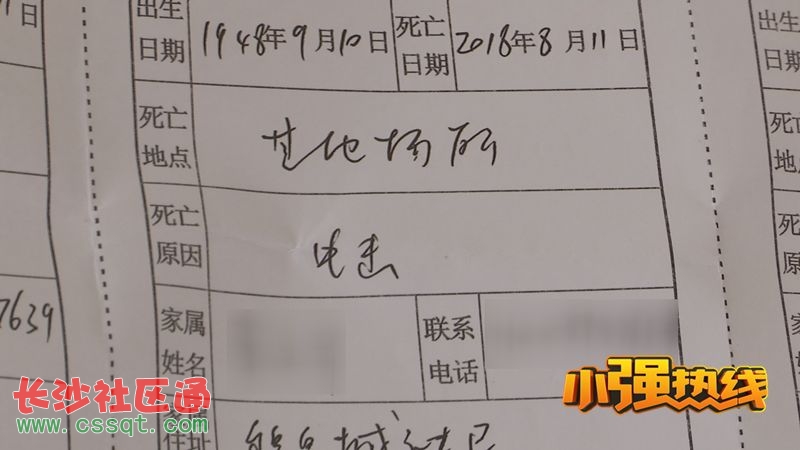 出生日期 1948年9月10日 死亡日期 2018年8月11日
死亡地点 其他场所
死亡原因 电击
家属姓名 联系电话
住址
7639
出生日
死亡地点
死亡原
小强热线
长沙社区通
www.cssqt.com